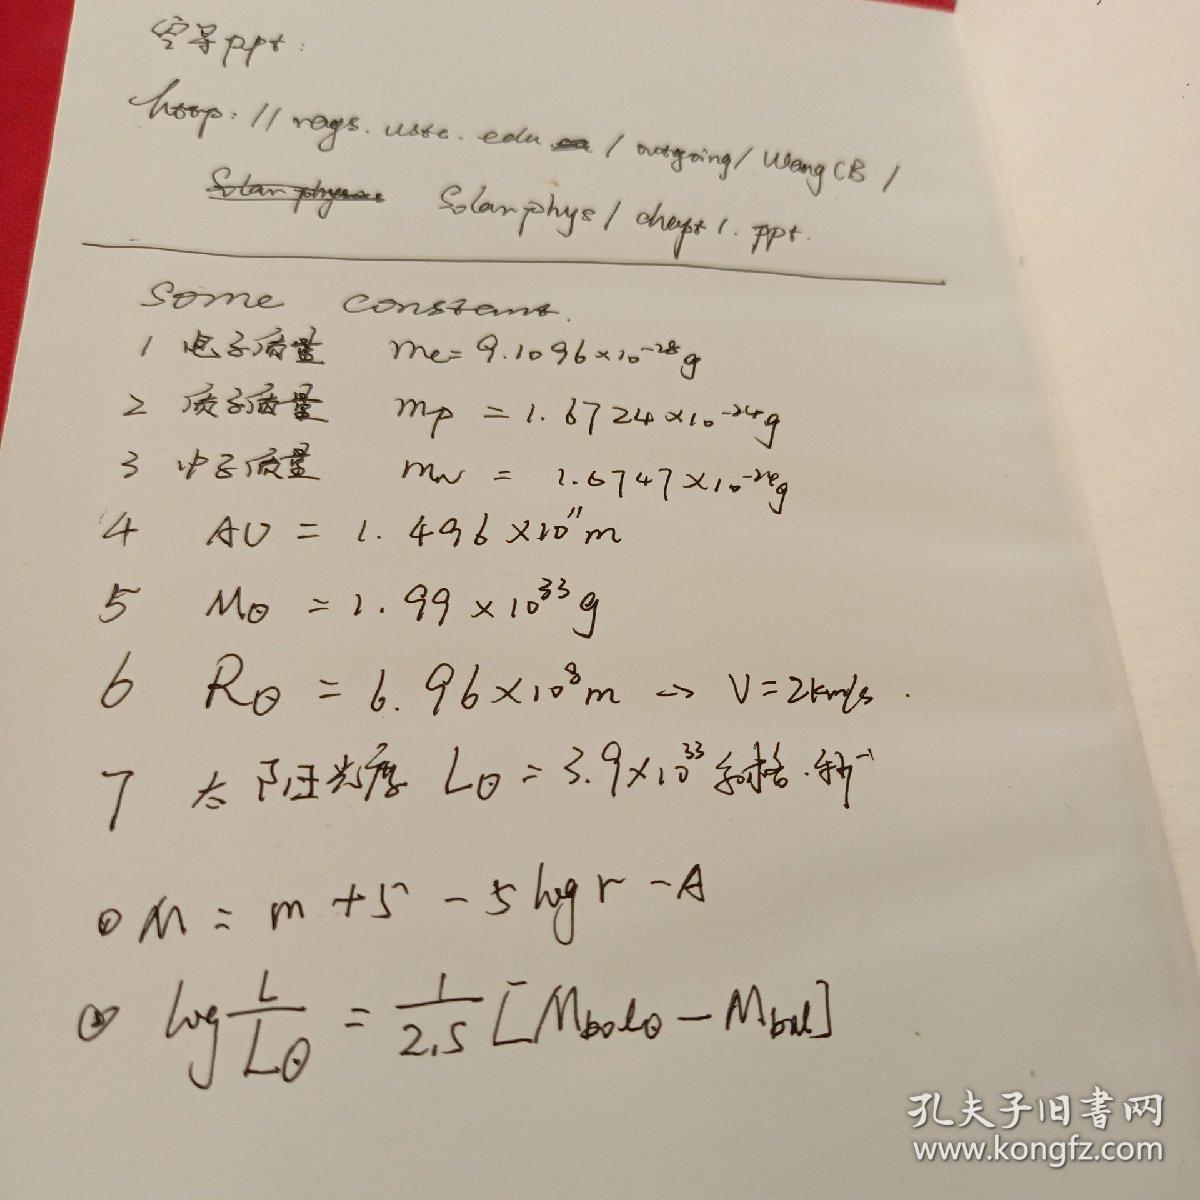 导ppt:
http://rags.ustc.edu.cn/outgoing/WangCB/
Solar phys Solarphys/chapt1.ppt.
Some constant.
1 电子质量 me=9.1096×10⁻²⁸g
2 质子质量 mp=1.6724×10⁻²⁴g
3 中子质量 mN = 1.6747×10⁻²⁴g
4 AU = 1.496×10¹¹m
5 M⊙ = 1.99×10³³g
6 R⊙ = 6.96×10⁸m → V=2km/s.
7 太阳光度 L⊙=3.9×10³³尔格·秒⁻¹
① M = m+5-5logr-A
② log L/L⊙ = 1/2.5 [Mbol⊙-Mbol]
孔夫子旧书网
www.kongfz.com